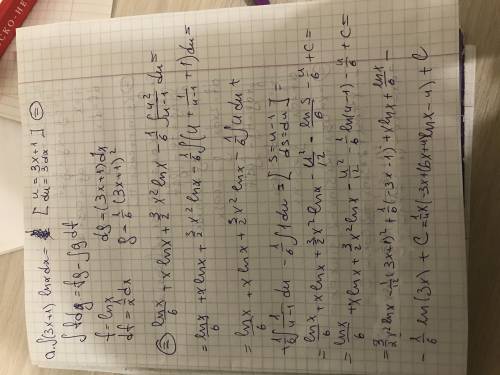 ∫(3x+1) ln x dx = [ u = 3x+1
du = 3dx ] ⊜
∫f dg = fg − ∫g df
f = ln x   dg = (3x+1)dx
df = 1/x dx   g = 1/6 (3x+1)²
⊜ ln x/6 + x ln x + 3/2 x² ln x − 1/6 ∫ u²/(u−1) du =
= ln x/6 + x ln x + 3/2 x² ln x − 1/6 ∫(u + 1/(u−1) + 1) du =
= ln x/6 + x ln x + 3/2 x² ln x − 1/6 ∫ u du +
+ 1/6 ∫ 1/(u−1) du − 1/6 ∫ 1 du = [ S = u−1
dS = du ] =
= ln x/6 + x ln x + 3/2 x² ln x − u²/12 − ln S/6 − u/6 + C =
= ln x/6 + x ln x + 3/2 x² ln x − u²/12 − 1/6 ln(u−1) − u/6 + C =
= 3/2 x² ln x − 1/12 (3x+1)² + 1/6 (−3x−1) + x ln x + ln x/6 −
− 1/6 ln(3x) + C = 1/4 x(−3x+(6x+4) ln x − 4) + C